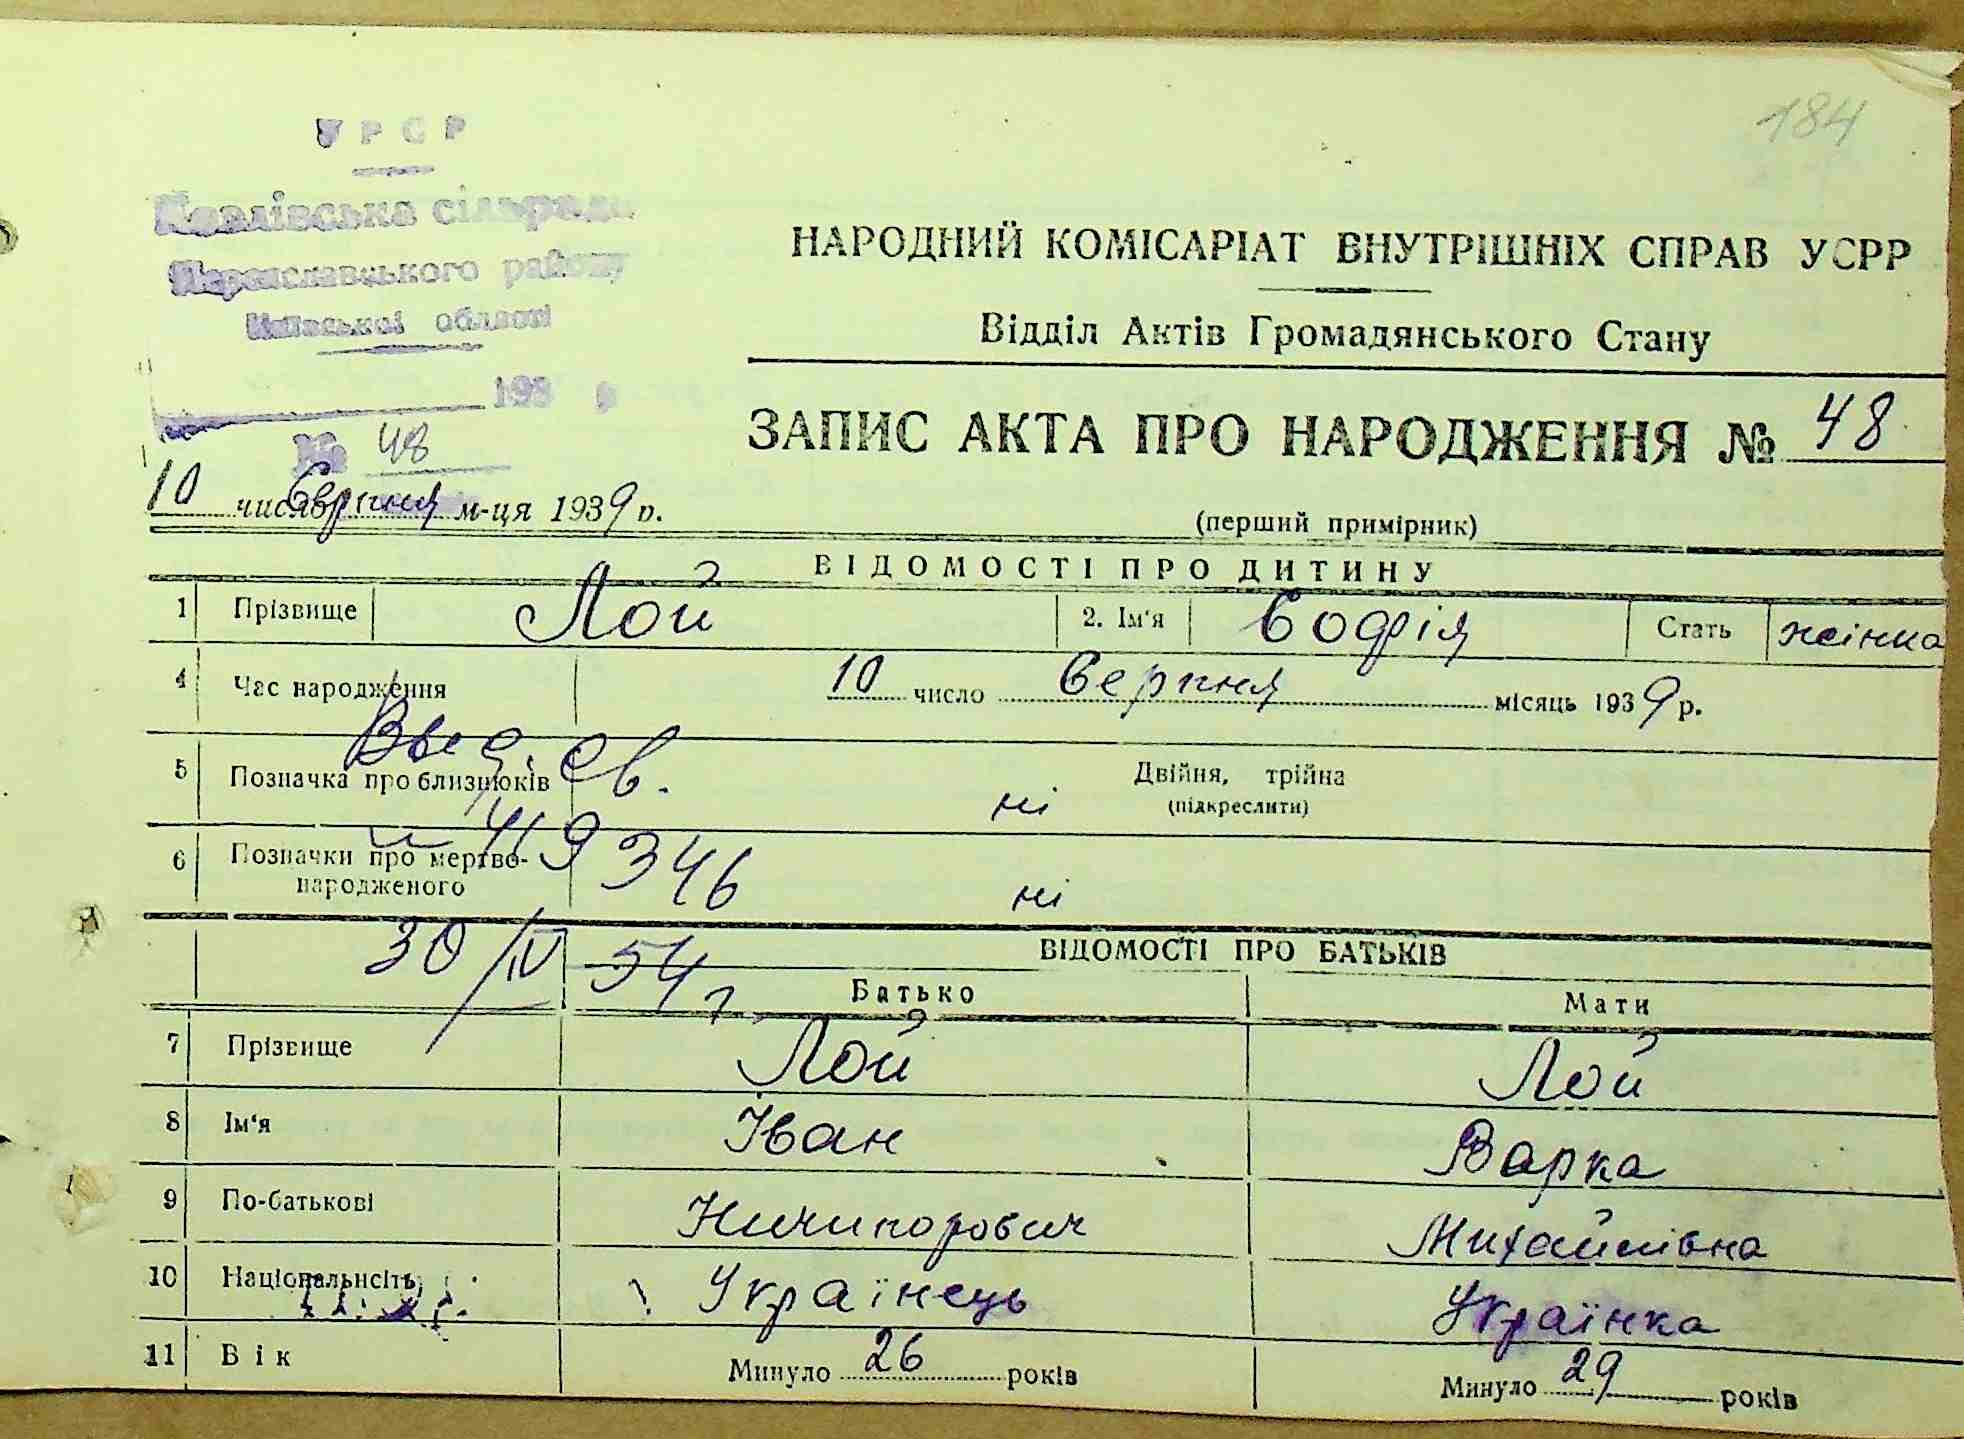 184
УРСР
Ковалівська сільрада
Переяславського району
Київської області
193 р
№ 48
10 числа Серпня м-ця 1939 р.
НАРОДНИЙ КОМІСАРІАТ ВНУТРІШНІХ СПРАВ УСРР
Відділ Актів Громадянського Стану
ЗАПИС АКТА ПРО НАРОДЖЕННЯ № 48
(перший примірник)
ВІДОМОСТІ ПРО ДИТИНУ
1 Прізвище Лой 2. Ім'я Софія Стать жінка
4 Час народження 10 число Серпня місяць 1939 р.
5 Позначка про близнюків ні Двійня, трійна
(підкреслити)
6 Позначки про мертво-
народженого ні
св.
419346
30/IV 54 г
ВІДОМОСТІ ПРО БАТЬКІВ
Батько Мати
7 Прізвище Лой Лой
8 Ім'я Іван Варка
9 По-батькові Ничипорович Михайлівна
10 Національнсіть Українець Українка
11 Вік Минуло 26 років Минуло 29 років